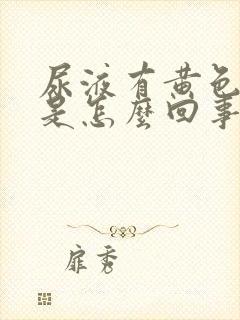 尿液有黄色
是怎麼回事
扉秀